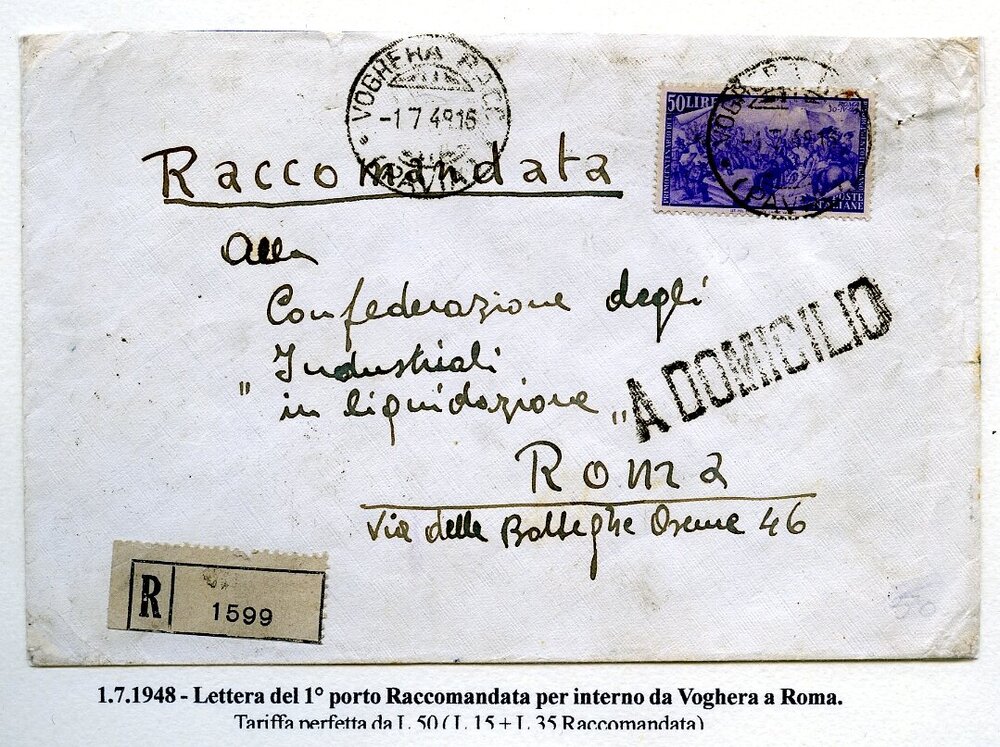 VOGHERA RACC.
-1.7.48.16
(PAVIA)
50 LIRE
POSTE
ITALIANE
Raccomandata
Alla
Confederazione degli
Industriali
"in liquidazione"
A DOMICILIO
Roma
Via delle Botteghe Oscure 46
R 1599
50
1.7.1948 - Lettera del 1° porto Raccomandata per interno da Voghera a Roma.
Tariffa perfetta da L. 50 ( L. 15 + L. 35 Raccomandata)